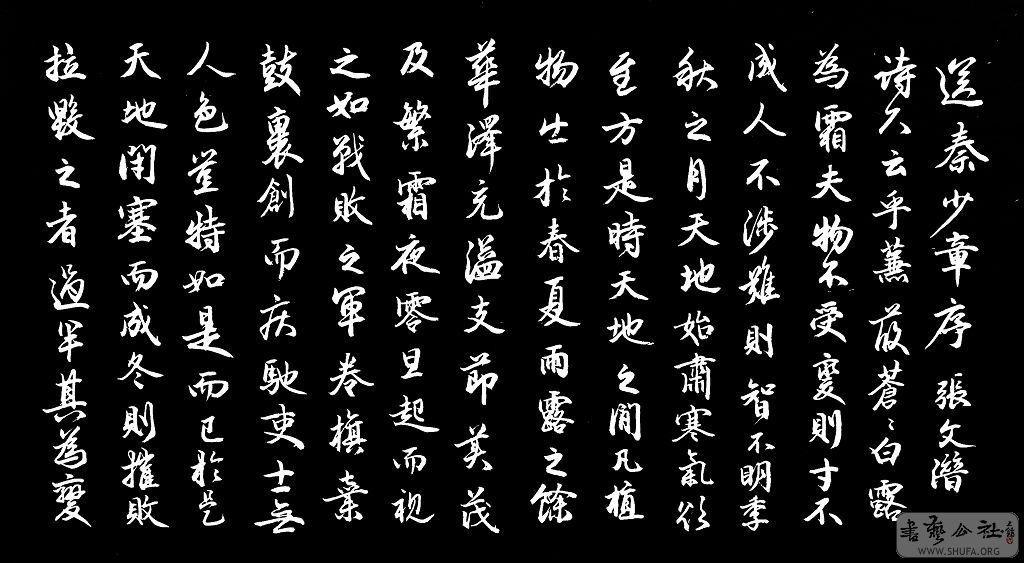 送秦少章序 張文潛
詩不云乎蒹葭蒼〻白露
為霜夫物不受變則寸不
成人不涉難則智不明季
秋之月天地始肅寒氣欲
至方是時天地之間凡植
物出於春夏雨露之餘
華澤充溢支節美茂
及繁霜夜零旦起而視
之如戰敗之軍卷旗棄
鼓裹創而疾馳吏士無
人色豈特如是而已於是
天地閉塞而成冬則摧敗
拉毀之者過半其為變
書藝公社
WWW.SHUFA.ORG